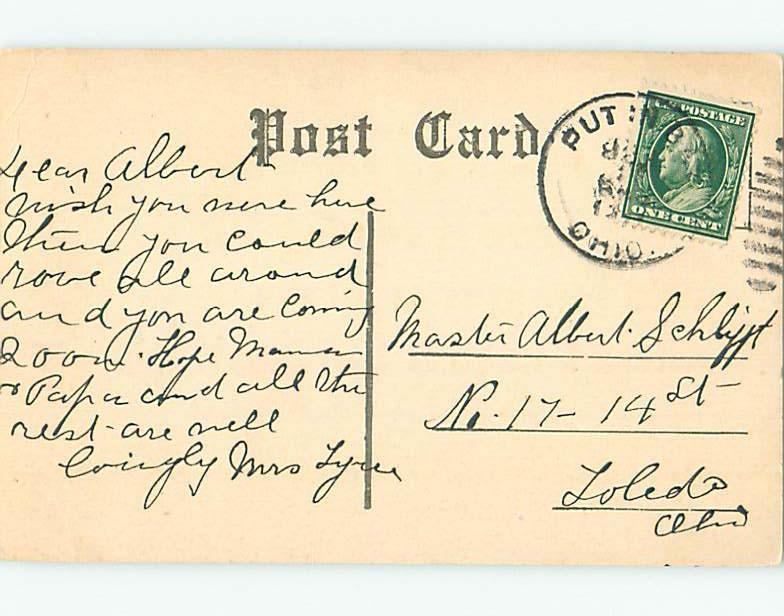 Post Card
PUT IN B
OHIO.
U.S. POSTAGE
ONE CENT
Dear Albert
wish you were here
then you could
rove all around
and you are coming
soon. Hope Mama
or Papa and all the
rest are well
lovingly Mrs
Master Albert
No. 17 - 14 St
Toledo
Ohio